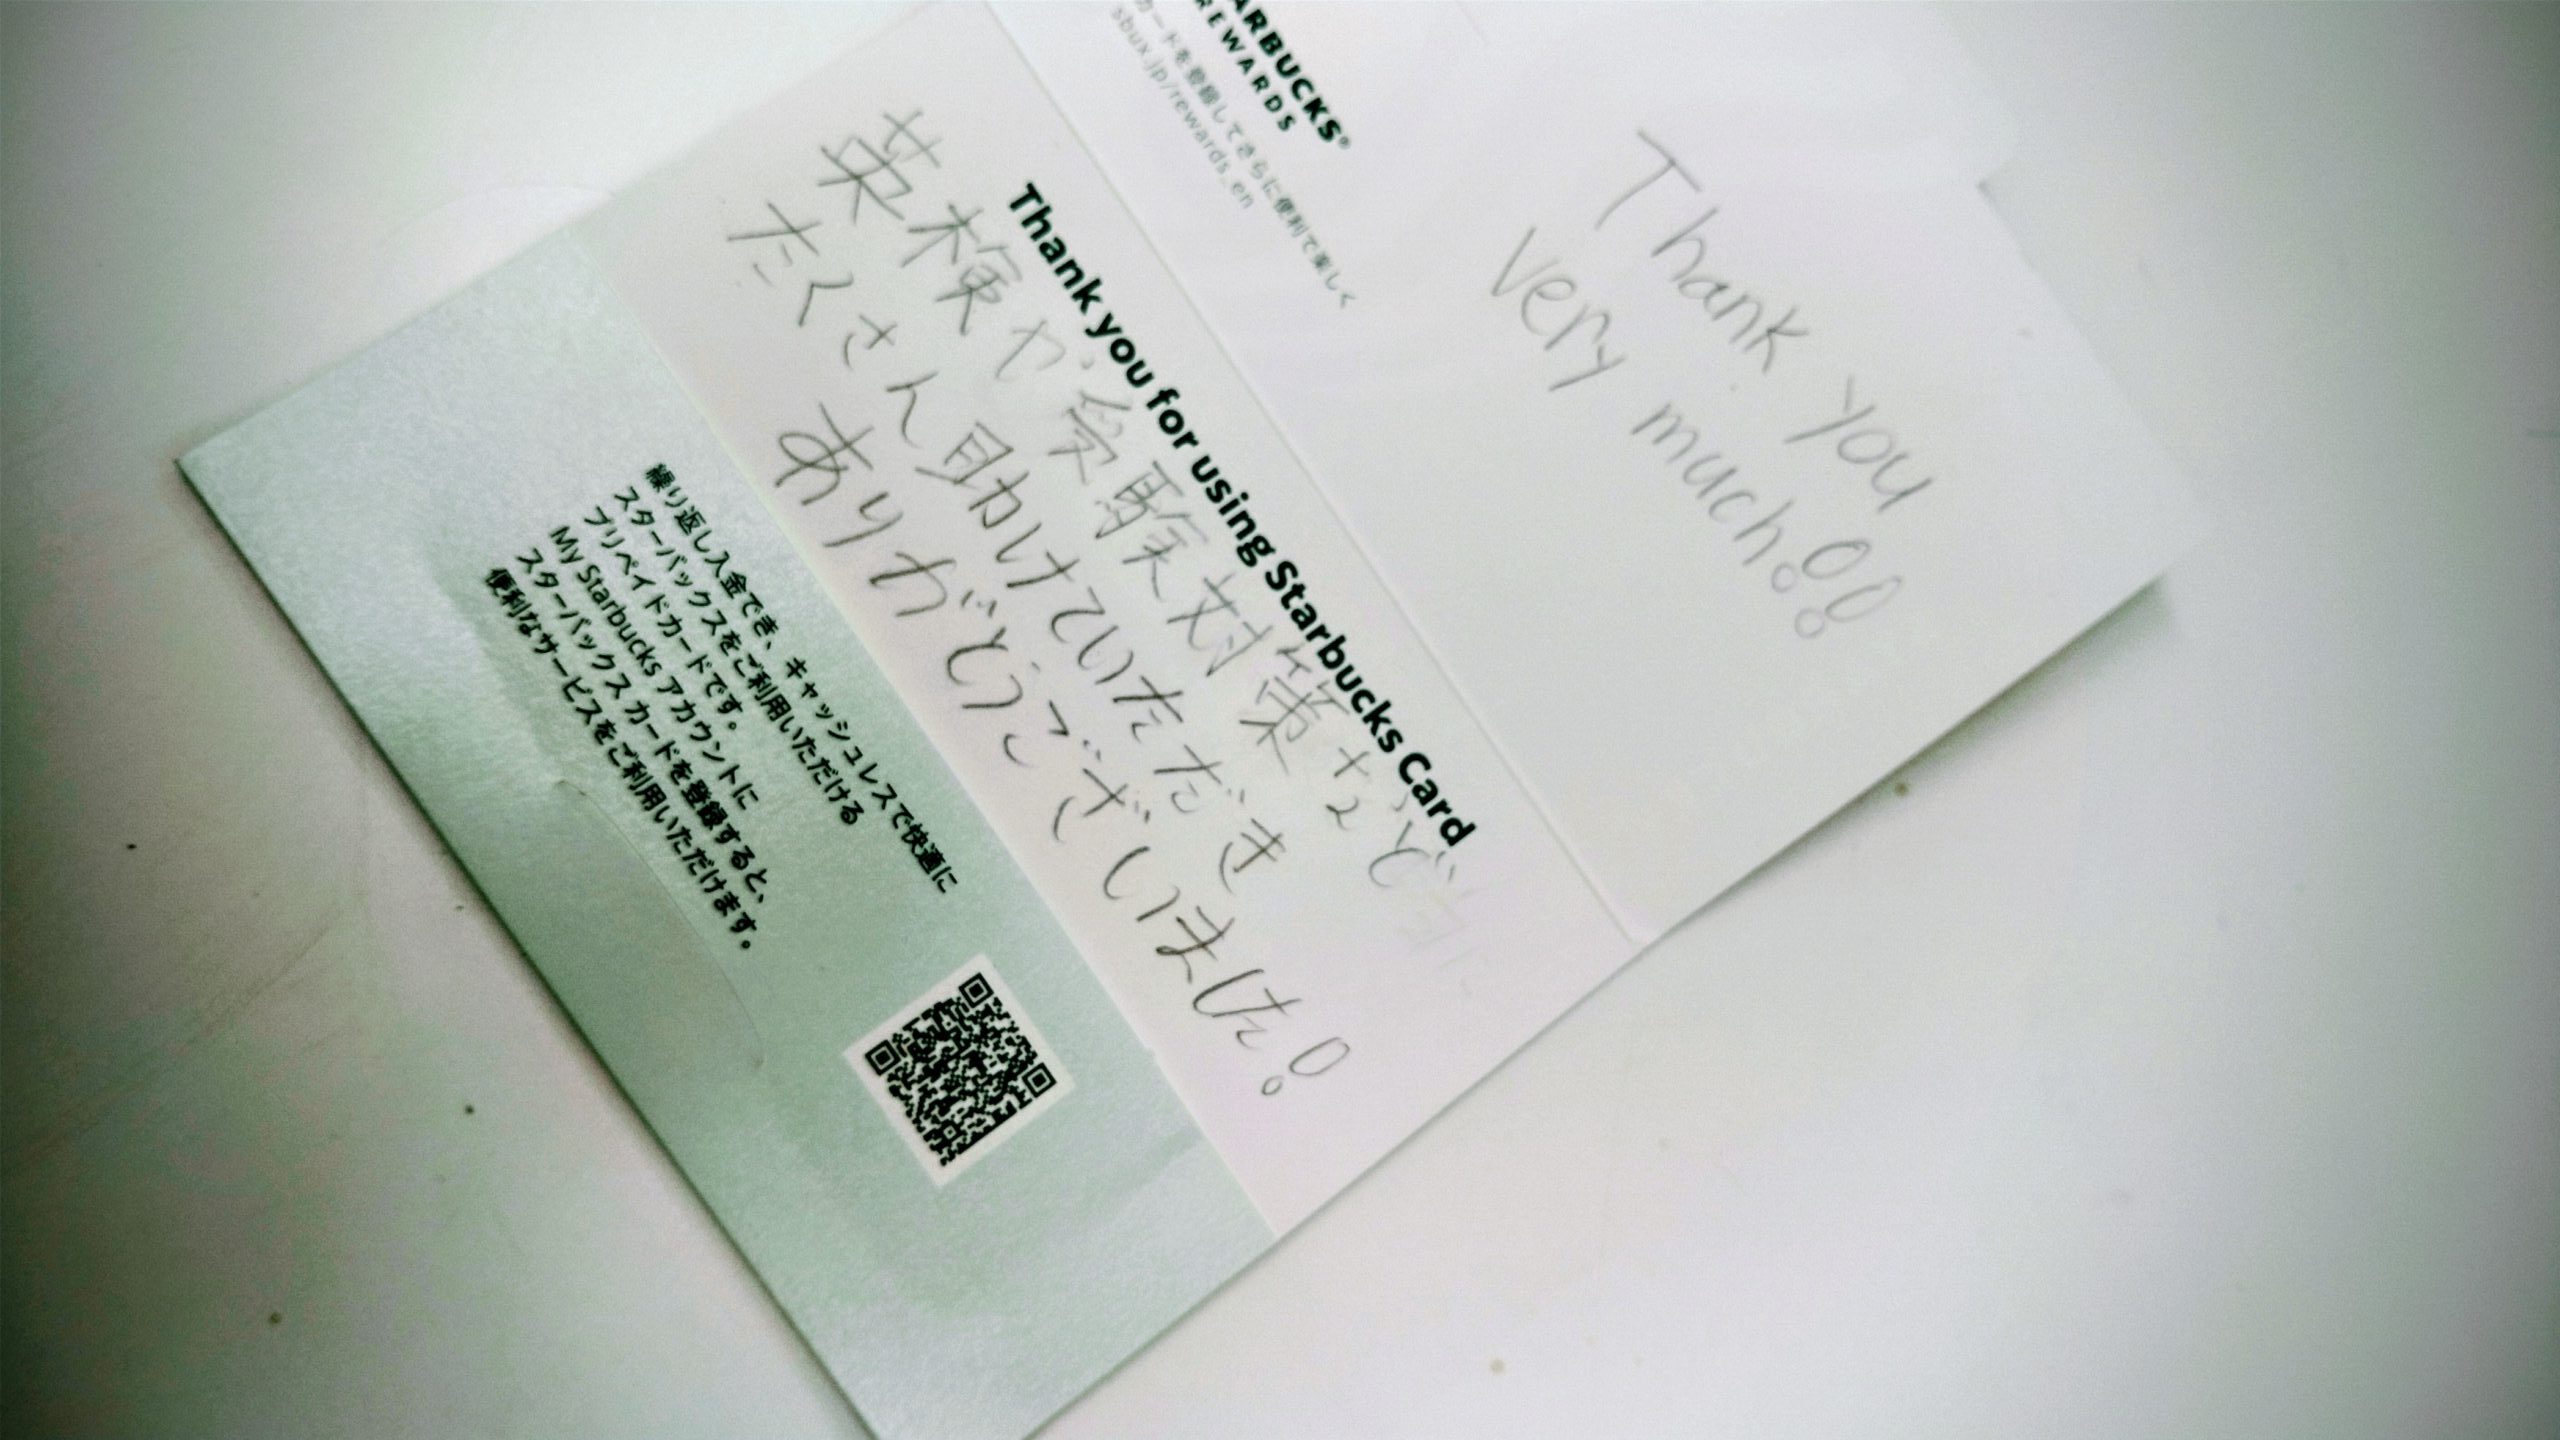 STARBUCKS®
REWARDS
カードを登録してさらに便利で楽しく
sbux.jp/rewards_en
Thank you
very much!!
Thank you for using Starbucks Card
英検や受験対策など
たくさん助けていただき
ありがとうございました!
繰り返し入金でき、キャッシュレスで快適に
スターバックスをご利用いただける
プリペイドカードです。
My Starbucks アカウントに
スターバックス カードを登録すると、
便利なサービスをご利用いただけます。